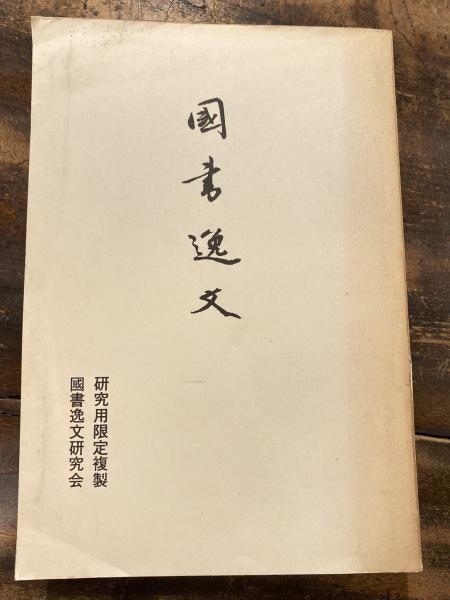 國書逸文
研究用限定複製
國書逸文研究会